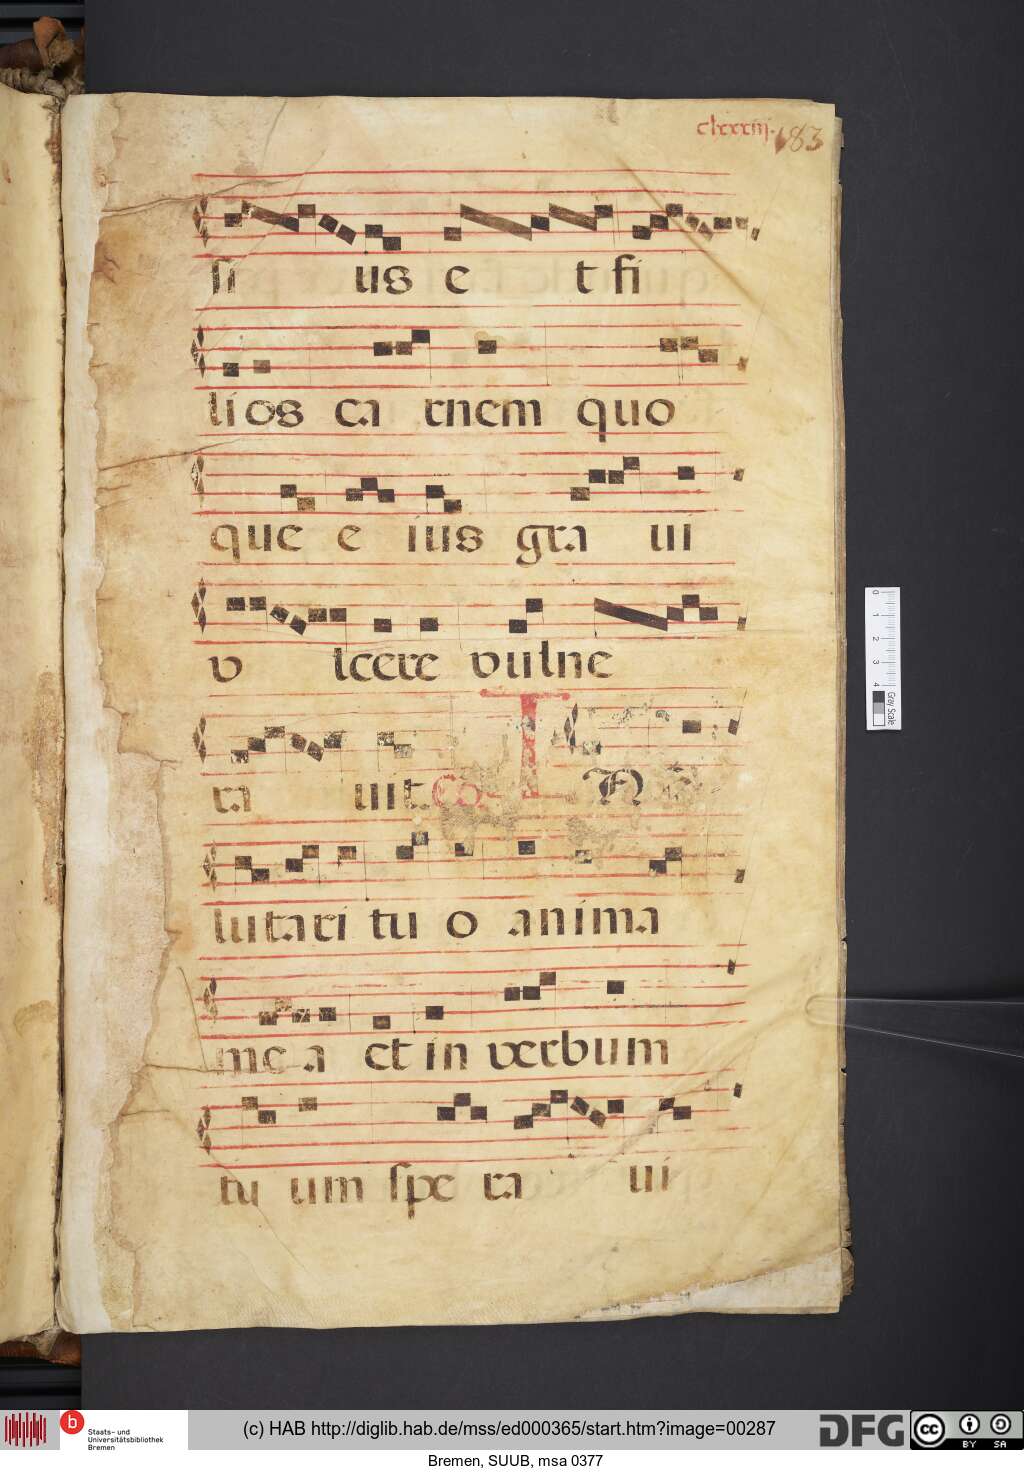 clxxxiij. 183
si us e t fi
lios ca rnem quo
que e ius gra ui
v lcere vulne
ra uit. Co. IN
lutari tu o anima
me a et in verbum
tu um spe ra ui
0 1 2 3 4
Gray Scale
b Staats- und Universitätsbibliothek Bremen
(c) HAB http://diglib.hab.de/mss/ed000365/start.htm?image=00287
DFG
cc BY SA
Bremen, SUUB, msa 0377